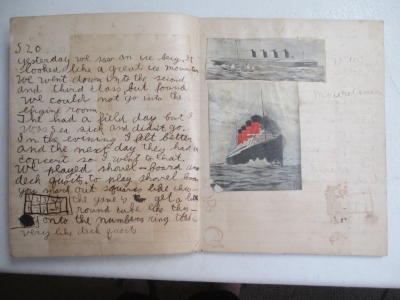 S 20
yesterday we saw an ice berg, it
looked like a great ice mountain
We went down into the second
and third class but found
We could not go into the
room.
The had a field day but I
was sea sick and didn't go.
In the evening I felt better
and the next day they had a
concert so I went to that.
We played shovel-board and
deck quoits, to play shovel board
you mark out squares like this—
the game is to get a
round like this—
onto the numbers ring
very like deck quoits